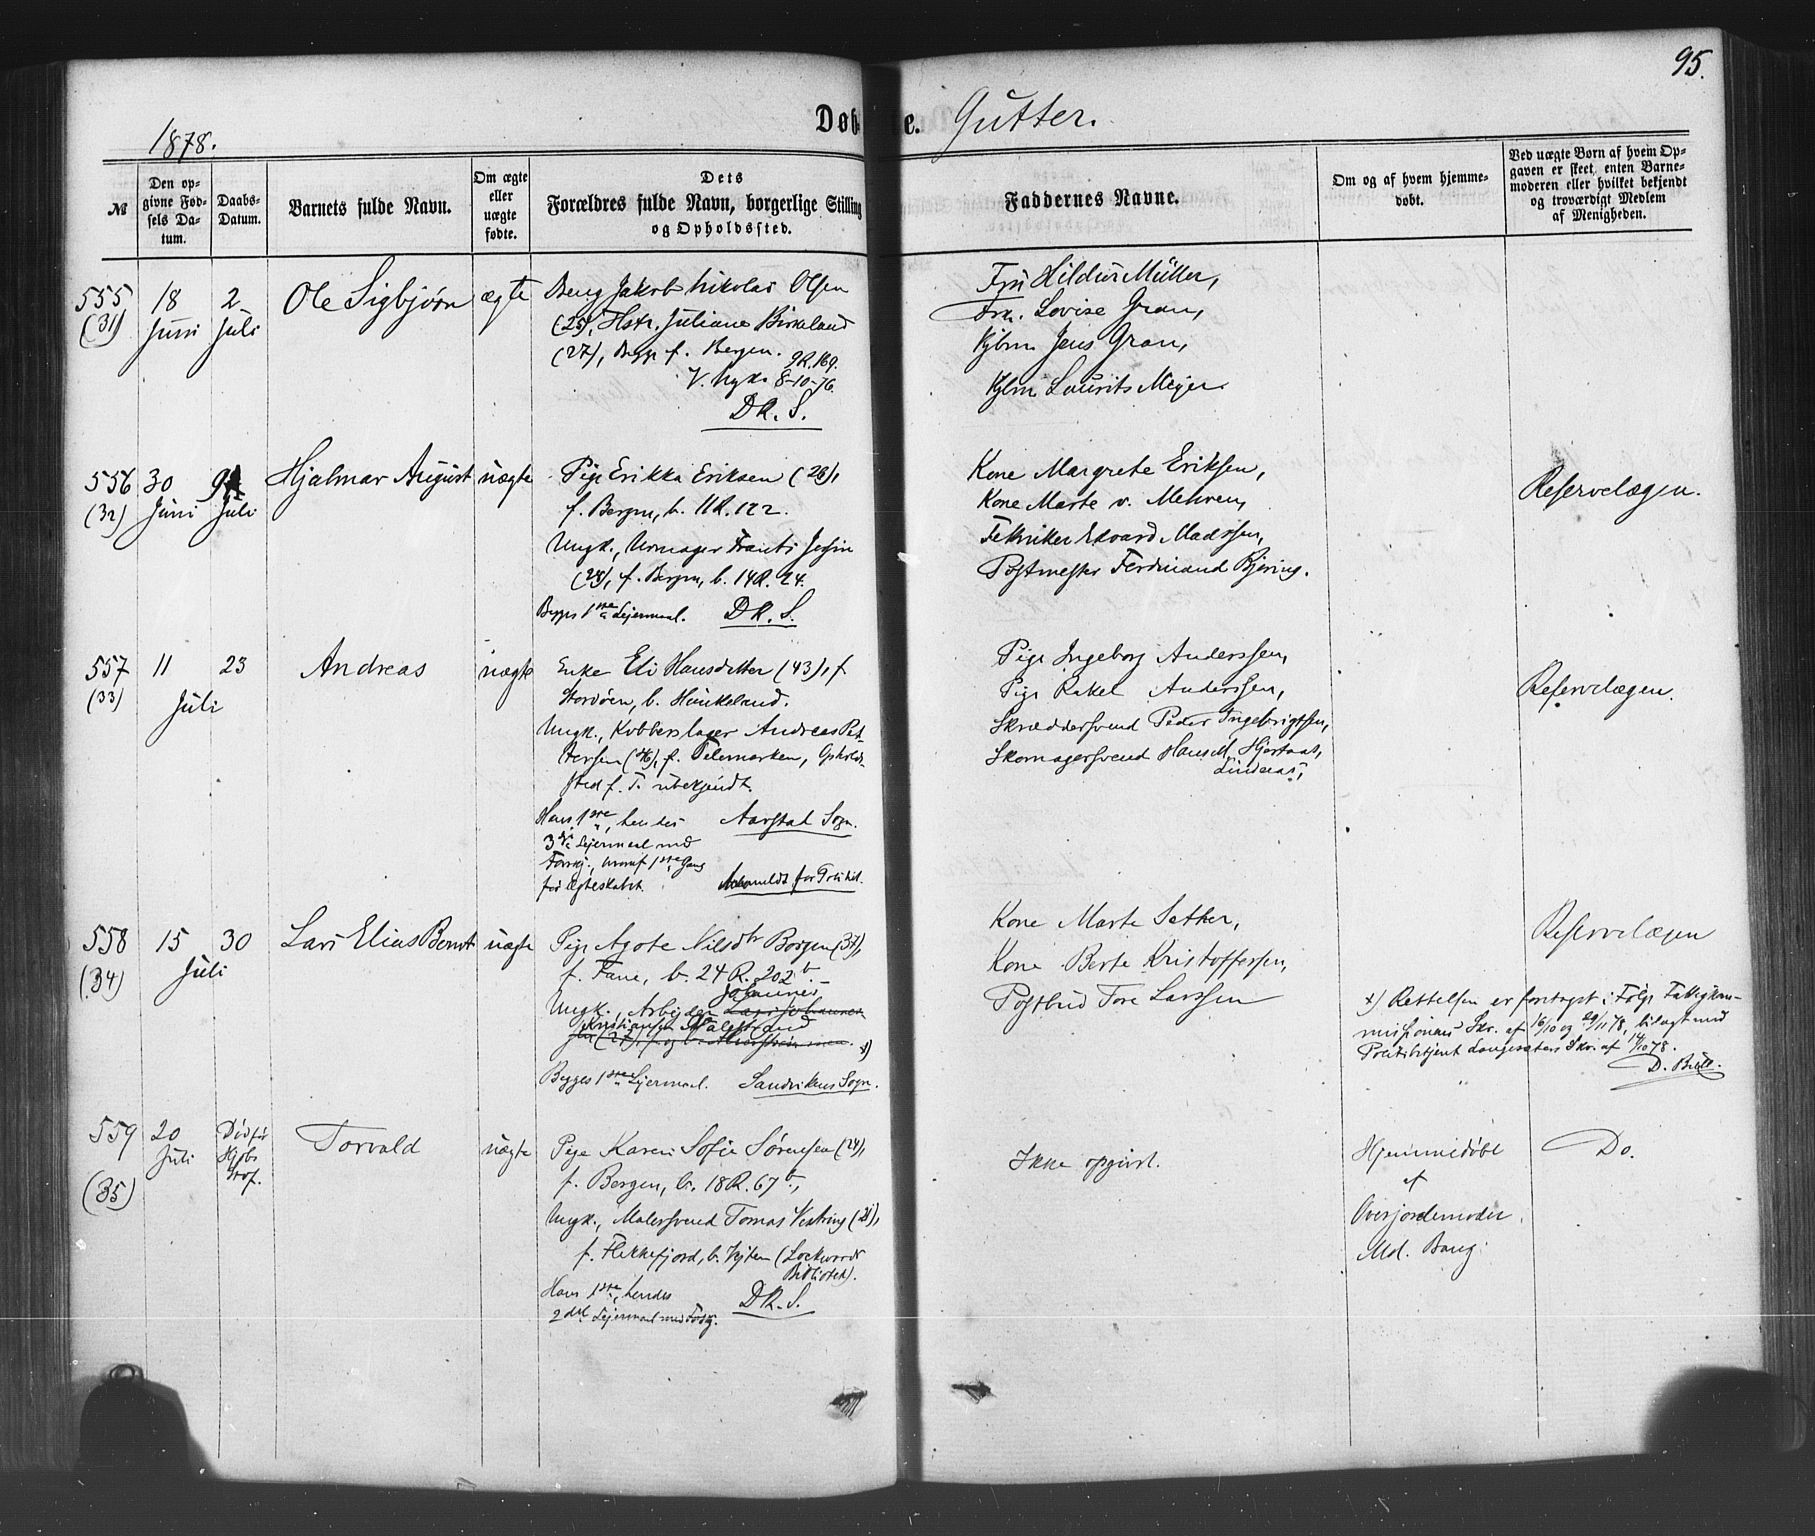 95.
1878.
Døb e. Gutter.
№
Den op-
givne Fød-
sels Da-
tum.
Daabs-
Datum.
Barnets fulde Navn.
Om ægte
eller
uægte
fødte.
Dets
Forældres fulde Navn, borgerlige Stilling
og Opholdssted.
Faddernes Navne.
Om og af hvem hjemme-
døbt.
Ved uægte Børn af hvem Op-
gaven er skeet, enten Barne-
moderen eller hvilket bekjendt
og troværdigt Medlem
af Menigheden.
555
(31)
18
Juni
2
Juli
Ole Sigbjørn
ægte
Jakob Nikolai Olsen
(25), Hstr. Juliane Birkeland
(27), Begge f. Bergen. 9R.169.
V. Nyk. 8-10-76.
DK. S.
Fru Hildur Müller,
Frk. Lovise Gran,
Kjbm Jens Gran,
Kjbm Laurits Meyer
556
(32)
30
Juni
9
Juli
Hjalmar August
uægte
Pige Erikka Eriksen (26),
f. Bergen, b. 11R.122.
Ungk., Urmager Frants
(28), f. Bergen, b. 14R. 24.
Begges 1ste Lejermaal. DK. S.
Kone Margrete Eriksen,
Kone Marte v. Mehren,
Tekniker Edvard Madssen,
Postmester Ferdinand Bjering.
Reservelægen.
557
(33)
11
Juli
23
Andreas
uægte
Enke Eli Hansdatter (43), f
Stordøen, b. Haukeland.
Ungk., Kobberslager Andreas Pet-
tersen (46), f. Telemarken, Opholds-
sted f. T. ubekjendt.
Hans 1ste, hendes Aarstad Sogn.
3die Lejermaal med
Forskj., hvoraf 1ste Gang
før Ægteskabet. Anmeldt for Politiet.
Pige Ingeborg Anderssen,
Pige Rakel Anderssen,
Skræddersvend Peder Ingebrigtsen,
Skomagersvend Hans M. Hjortaas,
Lindeaas,
Reservelægen.
558
(34)
15
Juli
30
Lars Elias Bernt
uægte
Pige Agote Nilsdtr Borgen (37),
f. Fane, b. 24 R. 202b.
Johannes
Ungk., Arbejder Lars Johannes-
Kristiansen
sen (27), f. og b. x)
Begges 1ste Lejermaal. Sandvikens Sogn.
Kone Marte Sether,
Kone Berte Kristoffersen,
Postbud Tore Larssen
Reservelægen
x) Rettelsen er foretaget i Følge Fattigkom-
missionens Skr. af 16/10 og 29/11 78, bilagt med
Politibetjent Langesæters Skr. af 14/10 78.
D. Bull.
559
(35)
20
Juli
Død før
Hjdbs
Stadf.
Torvald
uægte
Pige Karen Sofie Sørensen (24),
f. Bergen, b. 18R. 67b,
Ungk., Malersvend Tomas Vestring (21),
f. Flekkefjord, b. Vesten (Lockwoods
Bibliotek).
Hans 1ste, hendes
2det Lejermaal med Forskj. DK. S.
Ikke opgivet.
Hjemmedøbt
af
Overjordemoder
Md. Bang.
Do.